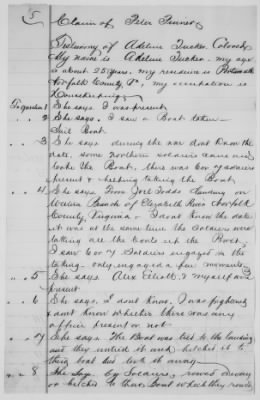 5
Claim of Peter Turner
Testimony of Adeline Tucker, Colored,
My name is Adeline Tucker. my age
is about 25 years. my residence is Portsmouth
Norfolk County, Va, my occupation is
Housekeeping
1 She says I was present
" " 2 She says, I saw a Boat taken
Sail Boat.
" " 3 She says during the war dont Know the
date, some Northern soldiers came and
took the Boat, there was 6 or 7 soldiers
present & helping taking the Boat,
" " 4 She says From Joel Todds Landing on
Western Branch of Elizabeth River Norfolk
County Virginia & I dont Know the date
it was at the same time the Soldiers were
taking all the boats up the River,
I saw 6 or 7 Soldiers engaged in the
taking only engaged a few moments
" " 5 She says Alex Elliott & myself was
present
" " 6 She says, I dont Know, I was frightened
& dont Know whether there was any
officer present or not
" " 7 She says The Boat was tied to the landing
and they untied it and hitched it to
their boat and took it away
" " 8 She says, by Soldiers, rowed away
or hitched to their Boat which they rowed